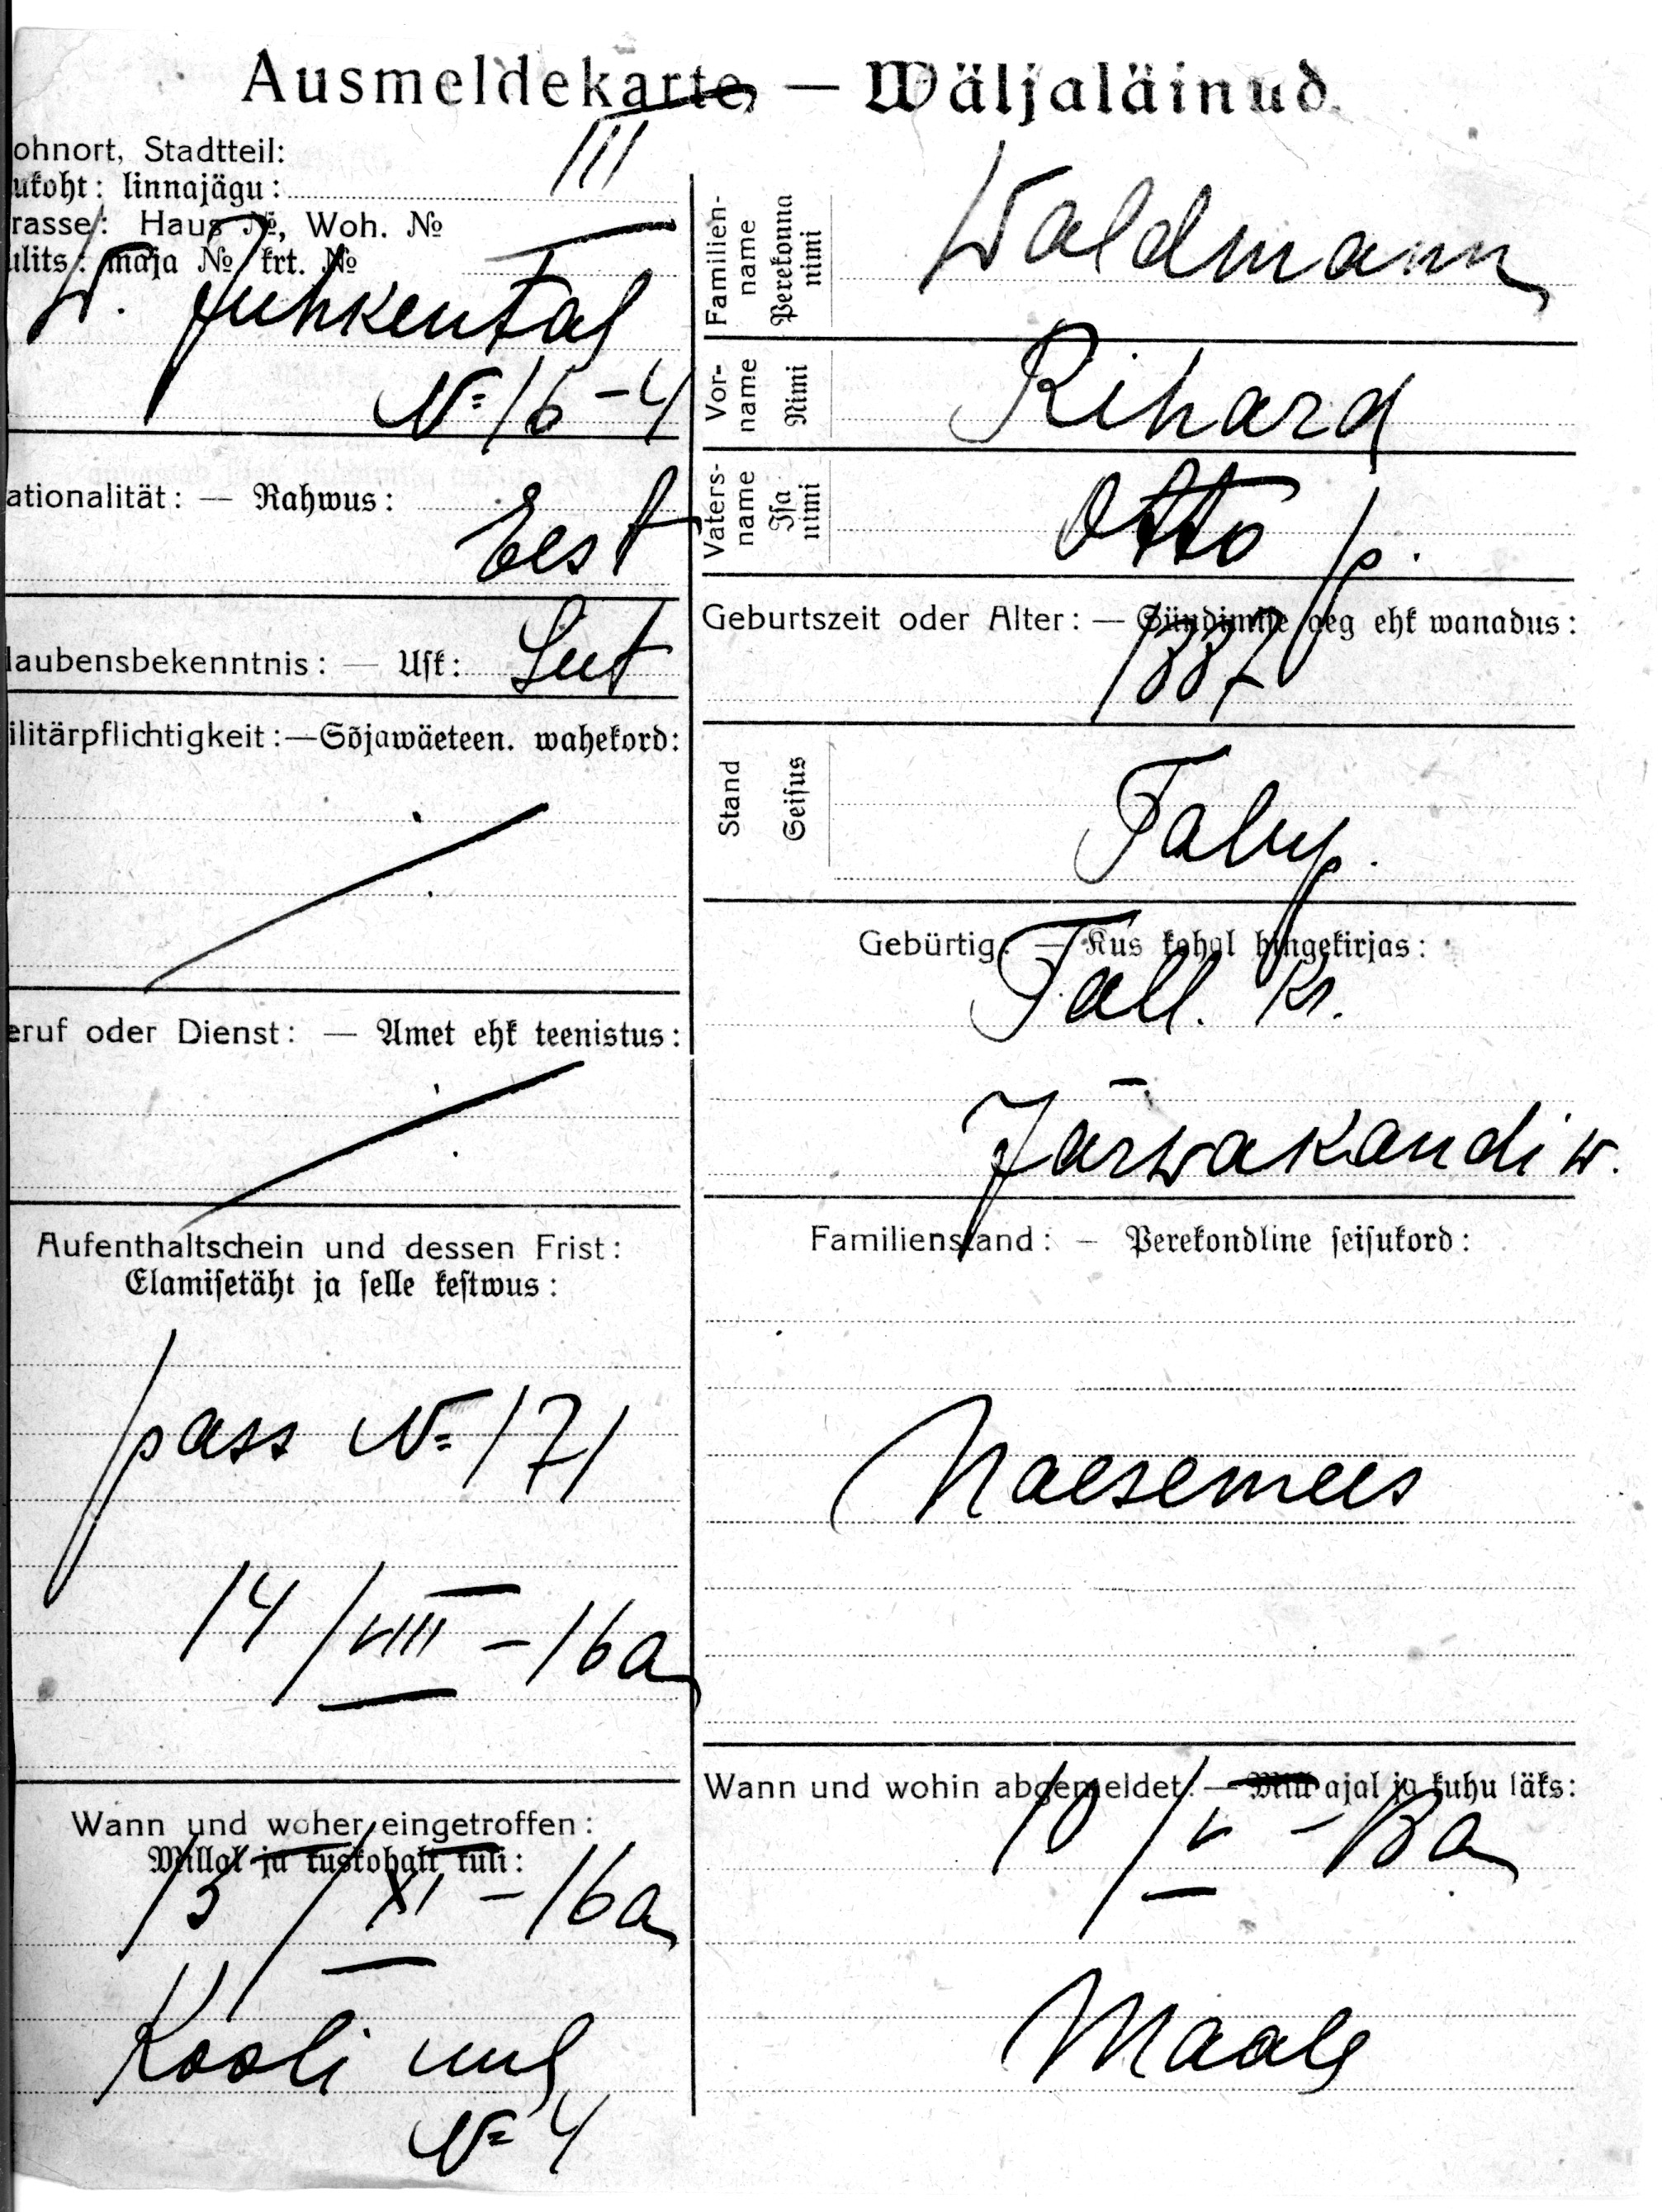 Ausmeldekarte — Wäljaläinud.
ohnort, Stadtteil:
ukoht: linnajägu:
III
rasse: Haus №, Woh. №
ulits: maja № krt. №
W. Juhkental
№ 16-4
ationalität: — Rahwus:
Eest
laubensbekenntnis: — Usk:
Lut
ilitärpflichtigkeit:—Sõjawäeteen. wahekord:
eruf oder Dienst: — Amet ehk teenistus:
Aufenthaltschein und dessen Frist:
Elamisetäht ja selle kestwus:
pass № 171
14/VIII - 16a
Wann und woher eingetroffen:
Millal ja kuskohalt tuli:
13/XI - 16a
Kooli
№ 4
Familien-
name
Perekonna
nimi
Waldmann
Vor-
name
Nimi
Rihard
Vaters-
name
Isa
nimi
Otto p.
Geburtszeit oder Alter: — Sündimise aeg ehk wanadus:
1887
Stand
Seisus
Talup.
Gebürtig: — Kus kohal hingekirjas:
Tall. Kr.
Järwakandi w.
Familienstand: — Perekondline seisukord:
Naesemees
Wann und wohin abgemeldet: — Mill ajal ja kuhu läks:
10/V - 18a
Maale